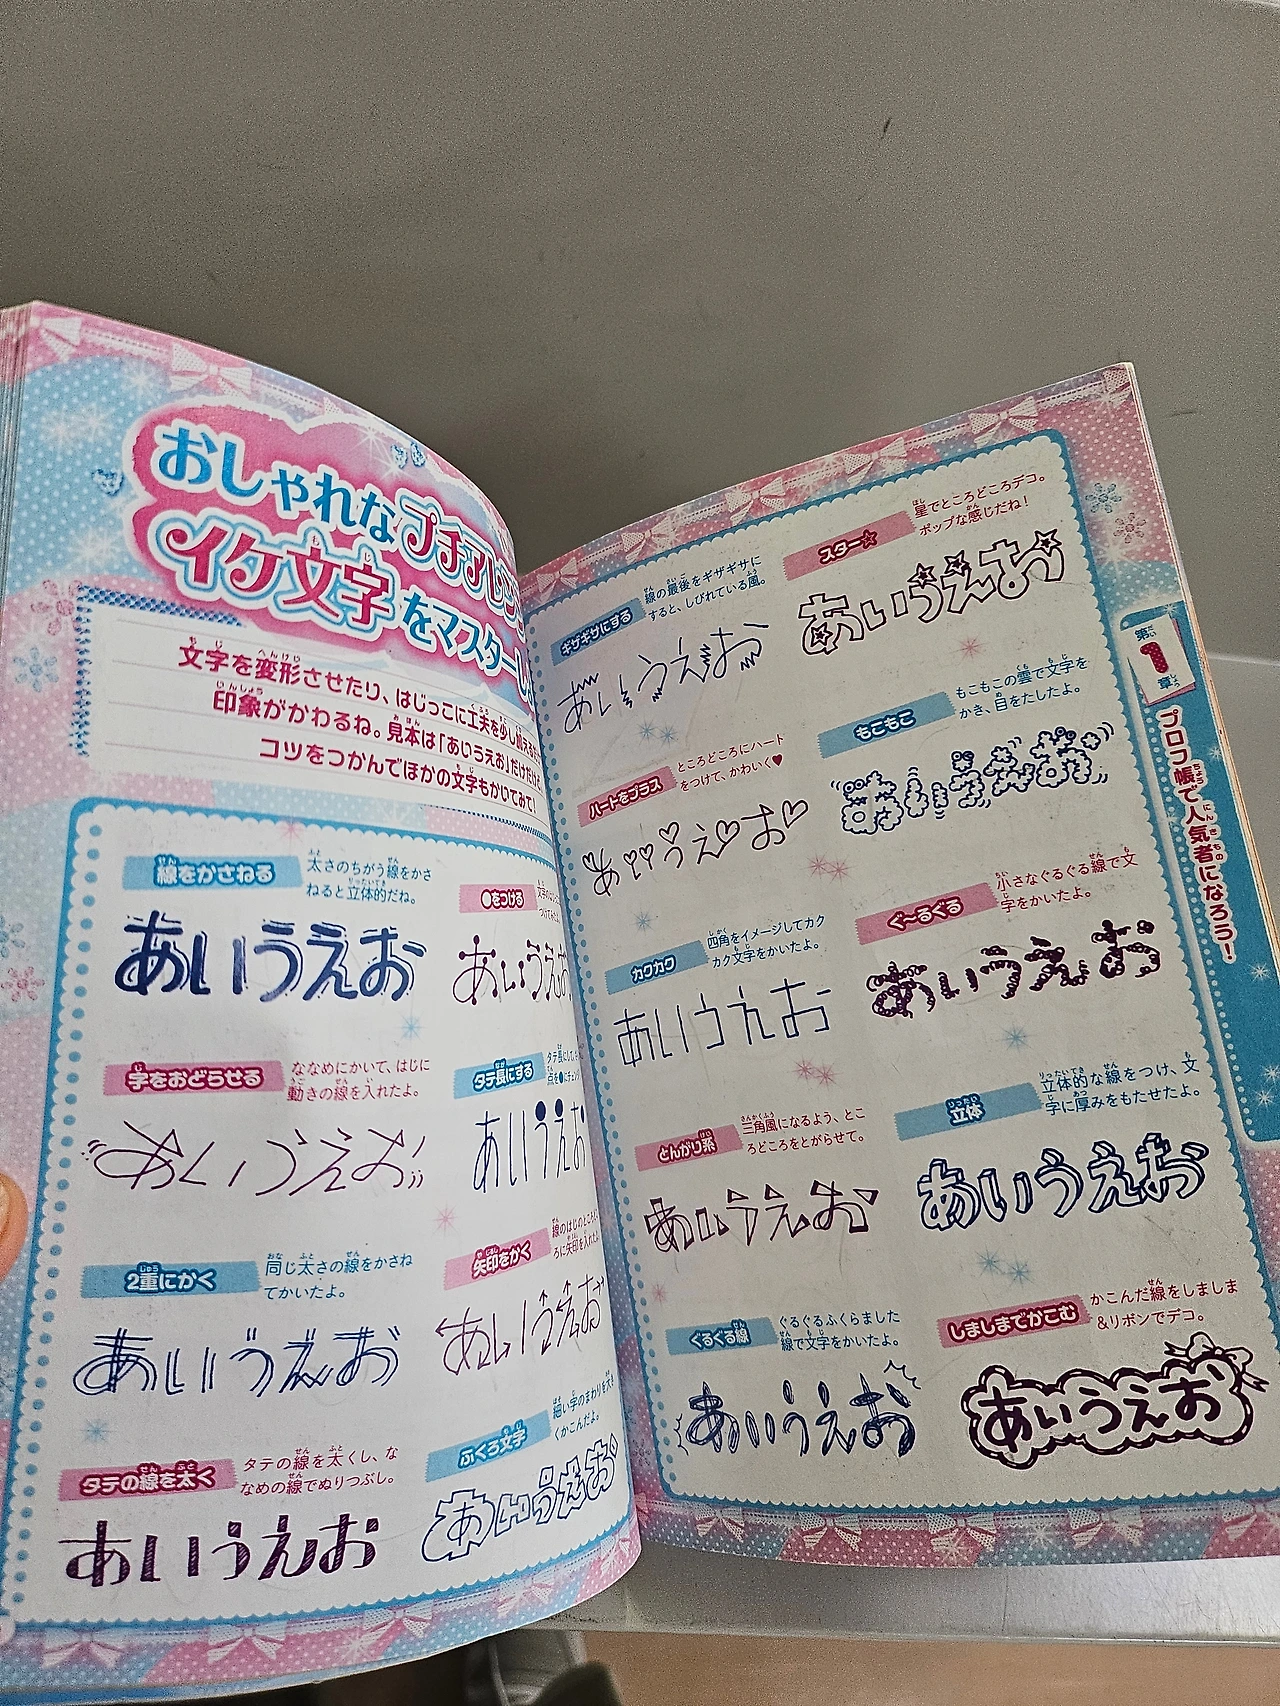 おしゃれなプチアレン
イケ文字をマスター
文字を変形させたり、はじっこに工夫を少し加え
印象がかわるね。見本は「あいうえお」だけだけど、
コツをつかんでほかの文字もかいてみて!
線をかさねる
太さのちがう線をかさ
ねると立体的だね。
あいうえお
●をつける
あいうえお
字をおどらせる
ななめにかいて、はじに
動きの線を入れたよ。
あいうえお
タテ長にする
タテ長にして
点を●にチェ
あいうえお
2重にかく
同じ太さの線をかさね
てかいたよ。
あいうえお
矢印をかく
線のはじのところ
ろに矢印を入れた
あいうえお
タテの線を太く
タテの線を太くし、な
なめの線でぬりつぶし。
あいうえお
ふくろ文字
細い字のまわりを大き
くかこんだよ。
あいうえお
ギザギザにする
線の最後をギザギザに
すると、しびれている風。
あいうえお
スター☆
星でところどころデコ。
ポップな感じだね!
あいうえお
ハートをプラス
ところどころにハート
をつけて、かわいく♥
あいうえお
もこもこ
もこもこの雲で文字を
かき、目をたしたよ。
あいうえお
カクカク
四角をイメージしてカク
カク文字をかいたよ。
あいうえお
ぐ〜るぐる
小さなぐるぐる線で文
字をかいたよ。
あいうえお
とんがり系
三角風になるよう、とこ
ろどころをとがらせて。
あいうえお
立体
立体的な線をつけ、文
字に厚みをもたせたよ。
あいうえお
ぐるぐる線
ぐるぐるふくらました
線で文字をかいたよ。
あいうえお
しましまでかこむ
かこんだ線をしましま
&リボンでデコ。
あいうえお
第1章
プロフ帳で人気者になろう!